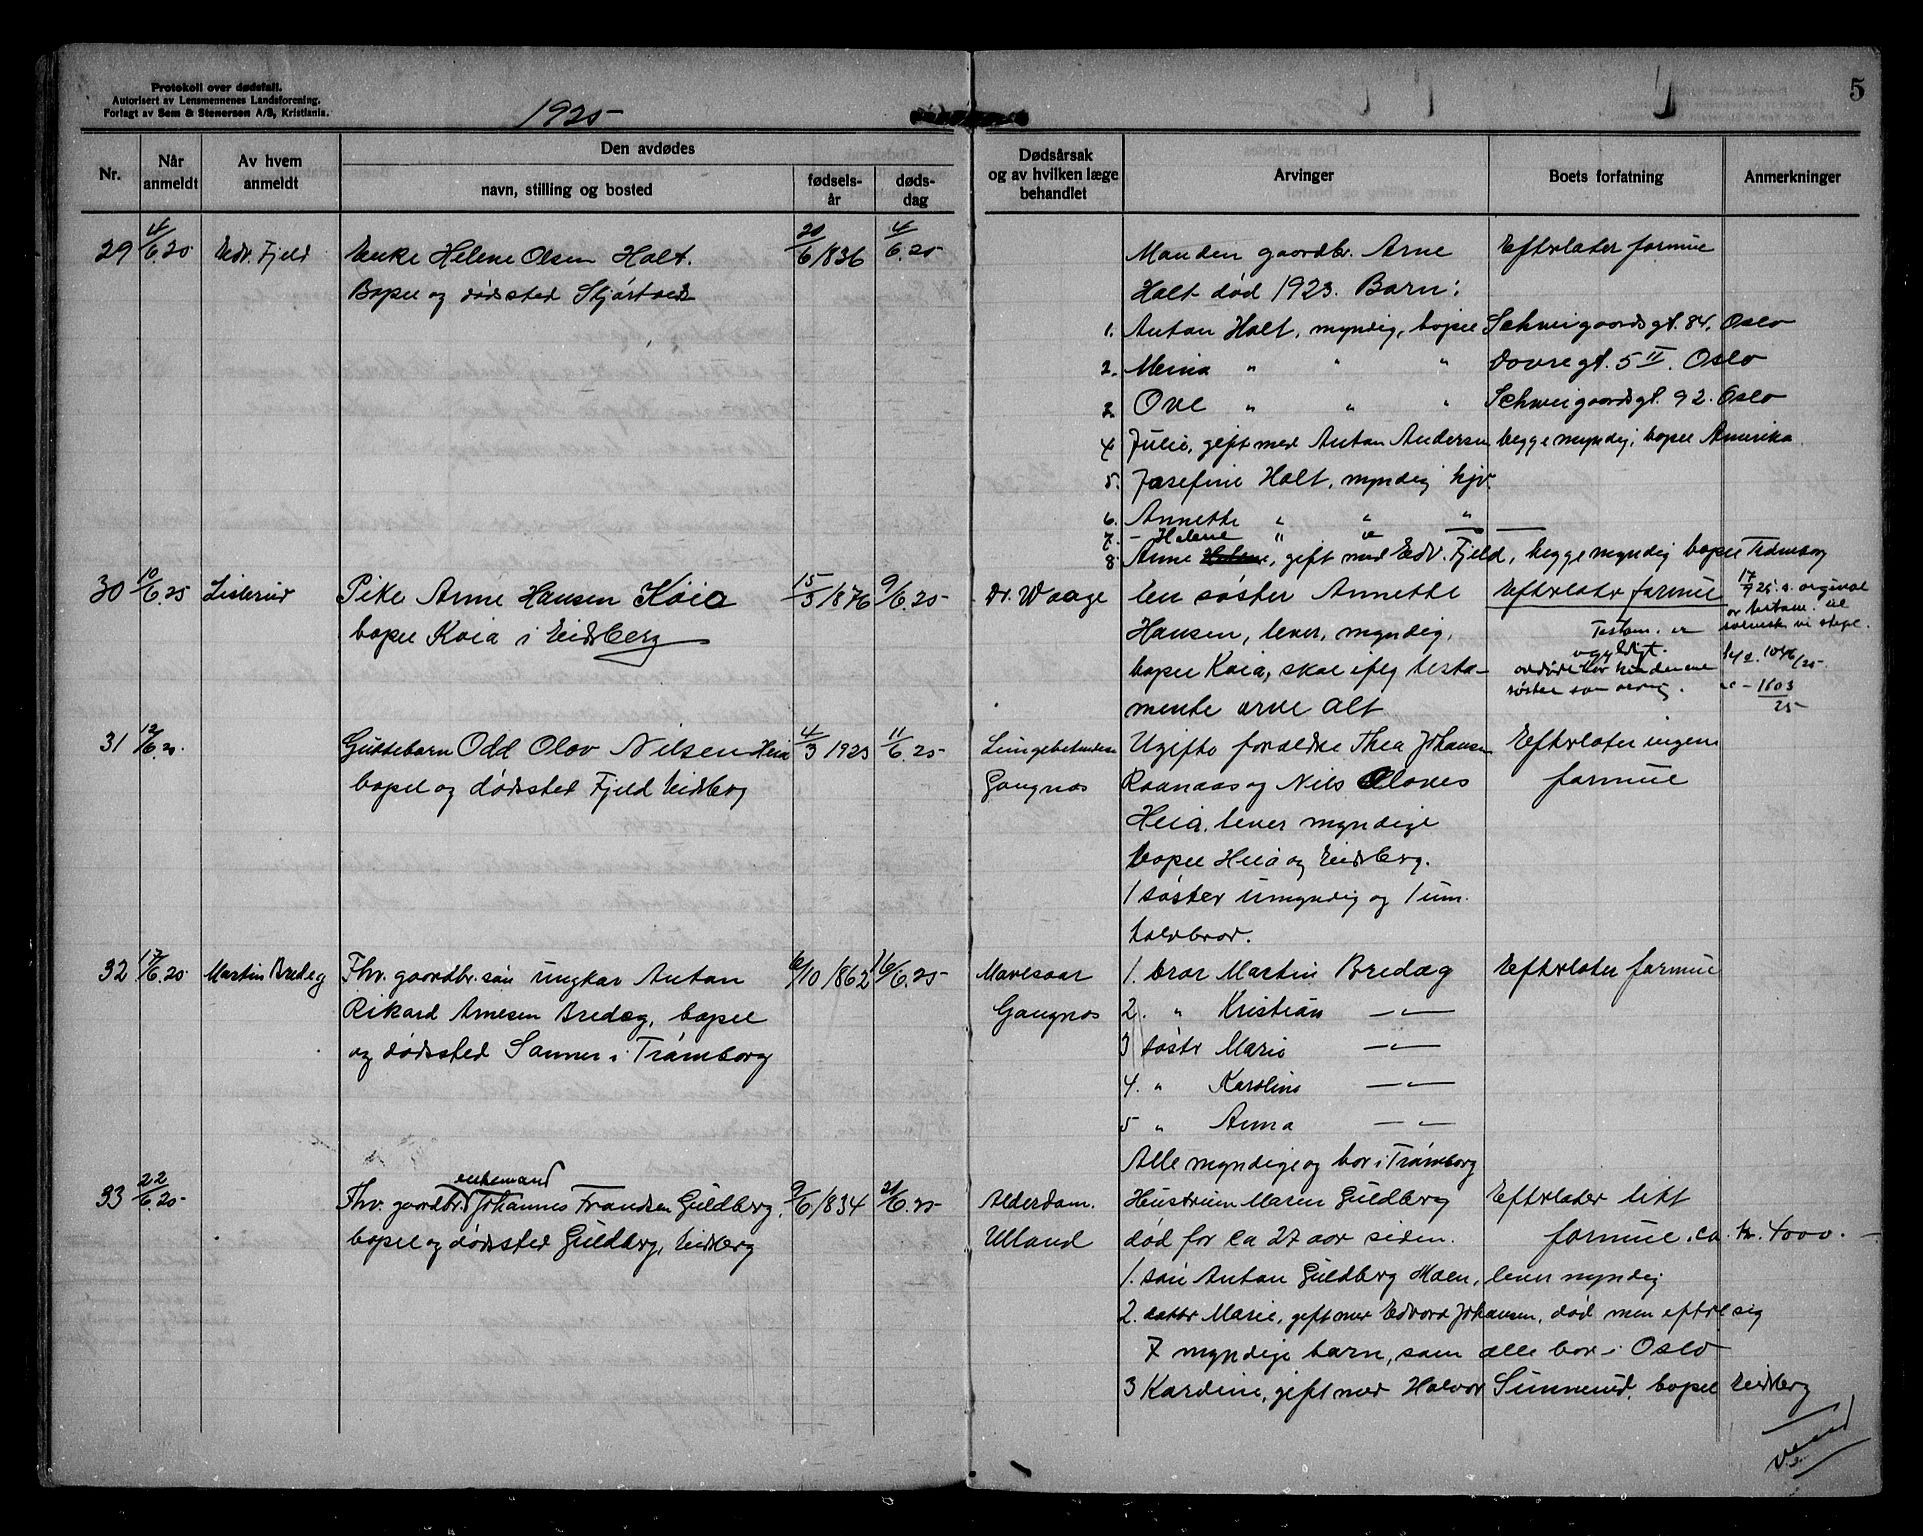 Protokoll over dødsfall.
Autorisert av Lensmennenes Landsforening.
Forlagt av Sem & Stenersen A/S, Kristiania.
1925
5
Nr.
Når anmeldt
Av hvem anmeldt
Den avdødes
navn, stilling og bosted
fødsels-år
døds-dag
Dødsårsak og av hvilken læge behandlet
Arvinger
Boets forfatning
Anmerkninger
29 4/6.25 Edv. Fjeld Enke Helene Olsen Holt. 20/6 1836 4/6.25 Manden gaardbr. Arne Efterlater formue
Bopel og dødssted
Holt død 1923. Barn:
1. Anton Holt, myndig, bopel Schweigaardsgt. 84. Oslo
2. Meina " " " Dovregt. 5 II. Oslo
3. Ove " " " Schweigaardsgt. 92. Oslo
4 Julie, gift med Anton Andersen begge myndig, bopel Amerika
5. Josefine Holt, myndig hjv.
6. Annette " " "
7. - Helene " "
8. Anne Helene, gift med Edv. Fjeld, begge myndig bopel Trømborg
30 10/6.25 Listerud Pike Anne Hansen Koia 15/3 1876 9/6.25 Dr. Waage En søster Annette Efterlater formue
bopel Koia i Eidsberg Hansen, lever, myndig, Testam. er ugyldigt.
bopel Koia, skal ifølg testa-
søster som arving.
mente arve alt
1046/25
1603/25
31 12/6.25. Guttebarn Odd Olav Nilsen Heia 4/3 1925 11/6.25 Lungebetendelse Ugifte foreldre Thea Johansen Efterlater ingen
bopel og dødssted Fjeld Eidsberg Gangnæs Raanaas og Nils Olaves formue
Heia, lever myndige
bopel Heia og Eidsberg.
1 søster umyndig og 1 um.
halvbror.
32 17/6.25 Martin Bredeg Fhv. gaardbr. søn ungkar Anton 6/10 1862 16/6.25 Mavesaar 1. bror Martin Bredæg Efterlater formue
Rikard Arnesen Bredæg, bopel Gangnæs 2. " Kristian — " —
og dødssted Sanner i Trømborg 3 søstr Marie — " —
4. " Karoline — " —
5 " Anna — " —
Alle myndige og bor i Trømborg
enkemand
33 22/6.25 Fhv. gaardbr. Johannes Frandsen Guldberg, 9/6 1834 21/6.25 Alderdom. Husstruen Maren Guldberg Efterlater litt
bopel og dødssted Guldberg, Eidsberg Ulland død for ca 27 aar siden. formue. ca. kr. 4000.—
1. søn Anton Guldberg Moen, lever myndig
2. datter Marie, gift med Edvard Johansen, død men efterl sig
7 myndige barn, som alle bor i Oslo
3 Karoline, gift med Halvor Sunnerud, bopel Eidsberg